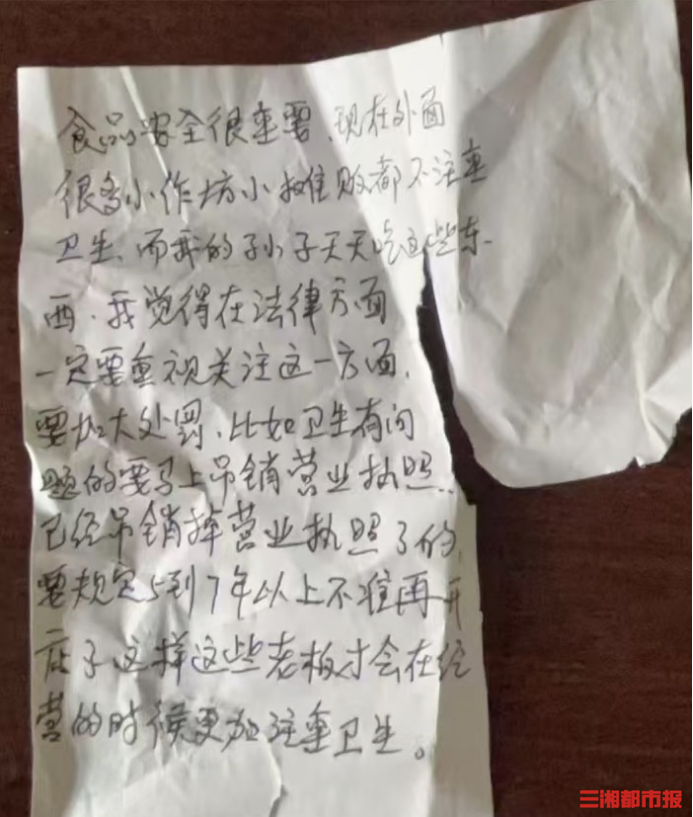 食品安全很重要、现在外面
很多小作坊小摊贩都不注重
卫生、而我的孙子天天吃这些东
西、我觉得在法律方面
一定要重视关注这一方面、
要加大处罚、比如卫生有问
题的要马上吊销营业执照、
已经吊销掉营业执照了的、
要规定5到7年以上不准再开
店子这样这些老板才会在经
营的时候更加注重卫生。
三湘都市报